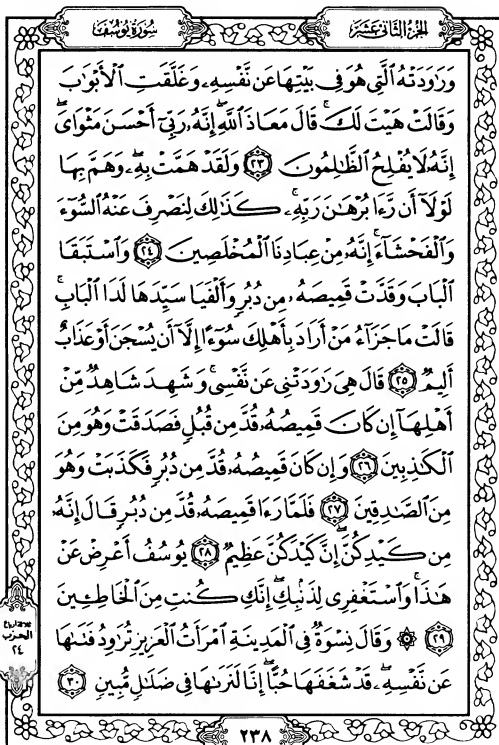 سُورَةُ يُوسُفَ
الجُزْءُ الثَّانِي عَشَرَ
وَرَٰوَدَتْهُ ٱلَّتِى هُوَ فِى بَيْتِهَا عَن نَّفْسِهِۦ وَغَلَّقَتِ ٱلْأَبْوَٰبَ
وَقَالَتْ هَيْتَ لَكَ ۚ قَالَ مَعَاذَ ٱللَّهِ ۖ إِنَّهُۥ رَبِّىٓ أَحْسَنَ مَثْوَاىَ ۖ
إِنَّهُۥ لَا يُفْلِحُ ٱلظَّٰلِمُونَ ٢٣ وَلَقَدْ هَمَّتْ بِهِۦ ۖ وَهَمَّ بِهَا
لَوْلَآ أَن رَّءَا بُرْهَٰنَ رَبِّهِۦ ۚ كَذَٰلِكَ لِنَصْرِفَ عَنْهُ ٱلسُّوٓءَ
وَٱلْفَحْشَآءَ ۚ إِنَّهُۥ مِنْ عِبَادِنَا ٱلْمُخْلَصِينَ ٢٤ وَٱسْتَبَقَا
ٱلْبَابَ وَقَدَّتْ قَمِيصَهُۥ مِن دُبُرٍ وَأَلْفَيَا سَيِّدَهَا لَدَا ٱلْبَابِ ۚ
قَالَتْ مَا جَزَآءُ مَنْ أَرَادَ بِأَهْلِكَ سُوٓءًا إِلَّآ أَن يُسْجَنَ أَوْ عَذَابٌ
أَلِيمٌ ٢٥ قَالَ هِىَ رَٰوَدَتْنِى عَن نَّفْسِى ۚ وَشَهِدَ شَاهِدٌ مِّنْ
أَهْلِهَآ إِن كَانَ قَمِيصُهُۥ قُدَّ مِن قُبُلٍ فَصَدَقَتْ وَهُوَ مِنَ
ٱلْكَٰذِبِينَ ٢٦ وَإِن كَانَ قَمِيصُهُۥ قُدَّ مِن دُبُرٍ فَكَذَبَتْ وَهُوَ
مِنَ ٱلصَّٰدِقِينَ ٢٧ فَلَمَّا رَءَا قَمِيصَهُۥ قُدَّ مِن دُبُرٍ قَالَ إِنَّهُۥ
مِن كَيْدِكُنَّ ۖ إِنَّ كَيْدَكُنَّ عَظِيمٌ ٢٨ يُوسُفُ أَعْرِضْ عَنْ
هَٰذَا ۚ وَٱسْتَغْفِرِى لِذَنۢبِكِ ۖ إِنَّكِ كُنتِ مِنَ ٱلْخَاطِـِٔينَ
٢٩ ۞ وَقَالَ نِسْوَةٌ فِى ٱلْمَدِينَةِ ٱمْرَأَتُ ٱلْعَزِيزِ تُرَٰوِدُ فَتَىٰهَا
عَن نَّفْسِهِۦ ۖ قَدْ شَغَفَهَا حُبًّا ۖ إِنَّا لَنَرَىٰهَا فِى ضَلَٰلٍ مُّبِينٍ ٣٠
الحزب
٢٤
٢٣٨